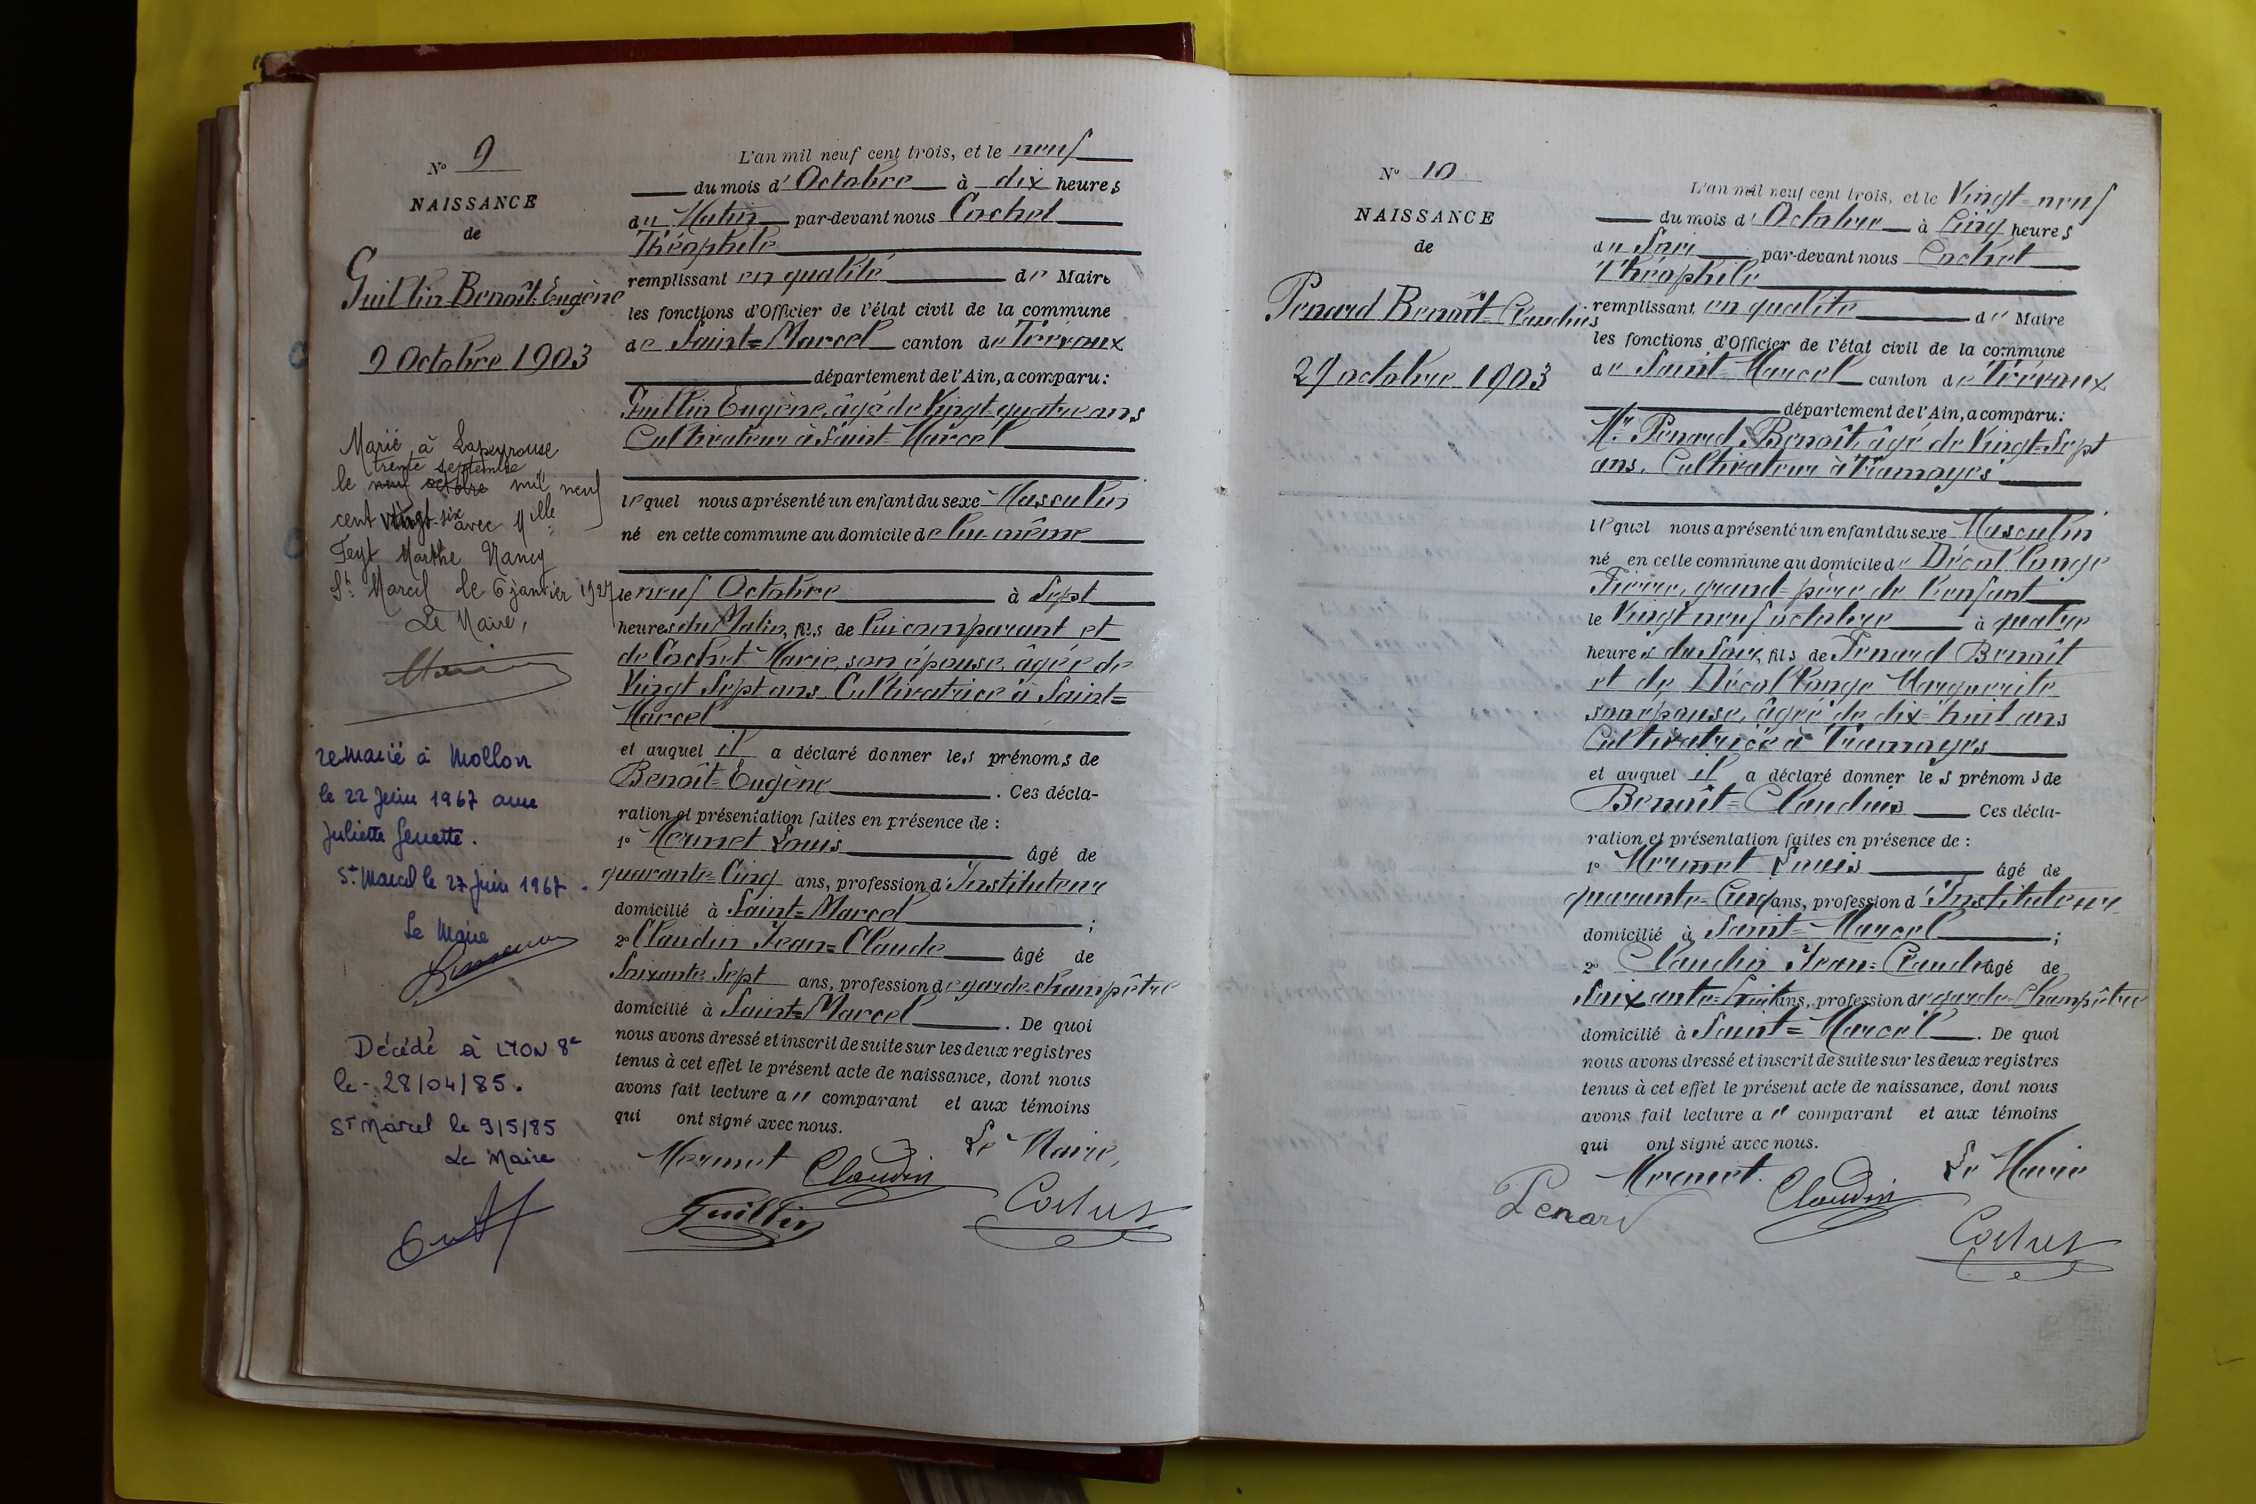 N° 9
NAISSANCE
de
Guillin Benoît-Eugène
9 Octobre 1903
Marié à Lapeyrouse
trente septembre
le neuf octobre mil neuf
cent vingt-six avec Mlle
Feyt Marthe Nancy
St Marcel le 6 janvier 1927
Le Maire,
remarié à Mollon
le 22 Juin 1967 avec
Juliette
St Marcel le 27 Juin 1967.
Le Maire
Décédé à LYON 8e
le 28/04/85.
ST Marcel le 9/5/85
Le Maire
L'an mil neuf cent trois, et le neuf
du mois d'Octobre à dix heures
du Matin par-devant nous Cochet
Théophile
remplissant en qualité de Maire
les fonctions d'Officier de l'état civil de la commune
de Saint=Marcel canton de Trévoux
département de l'Ain, a comparu :
Guillin Eugène, âgé de Vingt-quatre ans
Cultivateur à Saint-Marcel
lequel nous a présenté un enfant du sexe Masculin
né en cette commune au domicile de lui-même
le neuf Octobre à Sept
heures du Matin, fils de lui comparant et
de Cochet Marie, son épouse, âgée de
Vingt Sept ans Cultivatrice à Saint=
Marcel
et auquel il a déclaré donner les prénoms de
Benoît=Eugène. Ces décla-
ration et présentation faites en présence de :
1° Mermet Louis âgé de
quarante=Cinq ans, profession d'Instituteur
domicilié à Saint=Marcel ;
2° Claudin Jean=Claude âgé de
Soixante Sept ans, profession de garde-champêtre
domicilié à Saint=Marcel. De quoi
nous avons dressé et inscrit de suite sur les deux registres
tenus à cet effet le présent acte de naissance, dont nous
avons fait lecture au comparant et aux témoins
qui ont signé avec nous.
Le Maire,
Mermet Claudin
Guillin Cochet
N° 10
NAISSANCE
de
Penard Benoît=Claudius
29 octobre 1903
L'an mil neuf cent trois, et le Vingt=neuf
du mois d'Octobre à Cinq heures
du Soir par-devant nous Cochet
Théophile
remplissant en qualité de Maire
les fonctions d'Officier de l'état civil de la commune
de Saint=Marcel canton de Trévoux
département de l'Ain, a comparu :
Mr Penard Benoît, âgé de Vingt-Sept
ans, Cultivateur à Tramoyes
lequel nous a présenté un enfant du sexe Masculin
né en cette commune au domicile de Décol'longe
Pierre, grand-père de l'enfant
le Vingt neuf octobre à quatre
heures du Soir, fils de Penard Benoît
et de Décol'longe Marguerite
son épouse, âgée de dix=huit ans
Cultivatrice à Tramoyes
et auquel il a déclaré donner les prénoms de
Benoît=Claudius Ces décla-
ration et présentation faites en présence de :
1° Mermet Louis âgé de
quarante=Cinq ans, profession d'Instituteur
domicilié à Saint=Marcel ;
2° Claudin Jean=Claude âgé de
Soixante=huit ans, profession de garde-Champêtre
domicilié à Saint=Marcel. De quoi
nous avons dressé et inscrit de suite sur les deux registres
tenus à cet effet le présent acte de naissance, dont nous
avons fait lecture au comparant et aux témoins
qui ont signé avec nous.
Mermet. Le Maire
Penard Claudin
Cochet